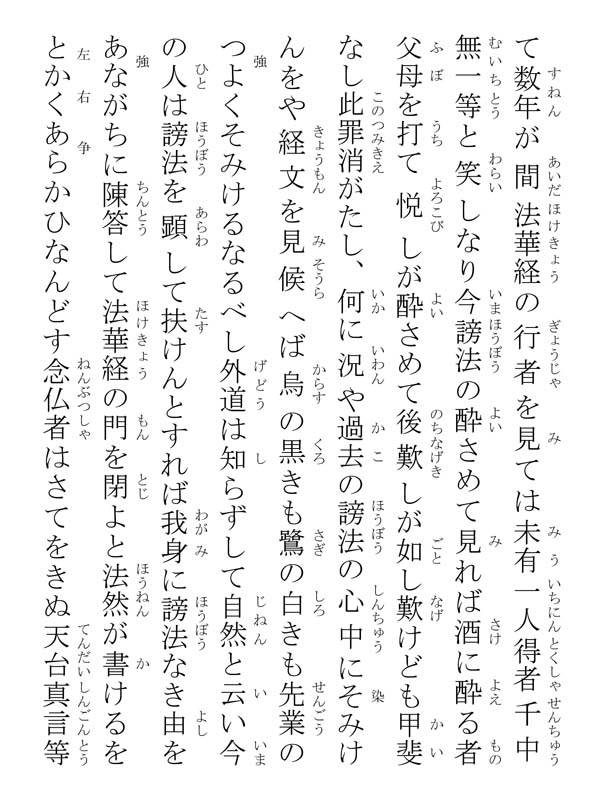 て数年が間法華経の行者を見ては未有一人得者千中
無一等と笑しなり今謗法の酔さめて見れば酒に酔る者
父母を打て悦しが酔さめて後歎しが如し歎けども甲斐
なし此罪消がたし、何に況や過去の謗法の心中にそみけ
んをや経文を見候へば烏の黒きも鷺の白きも先業の
つよくそみけるなるべし外道は知らずして自然と云い今
の人は謗法を顕して扶けんとすれば我身に謗法なき由を
あながちに陳答して法華経の門を閉よと法然が書けるを
とかくあらかひなんどす念仏者はさてをきぬ天台真言等